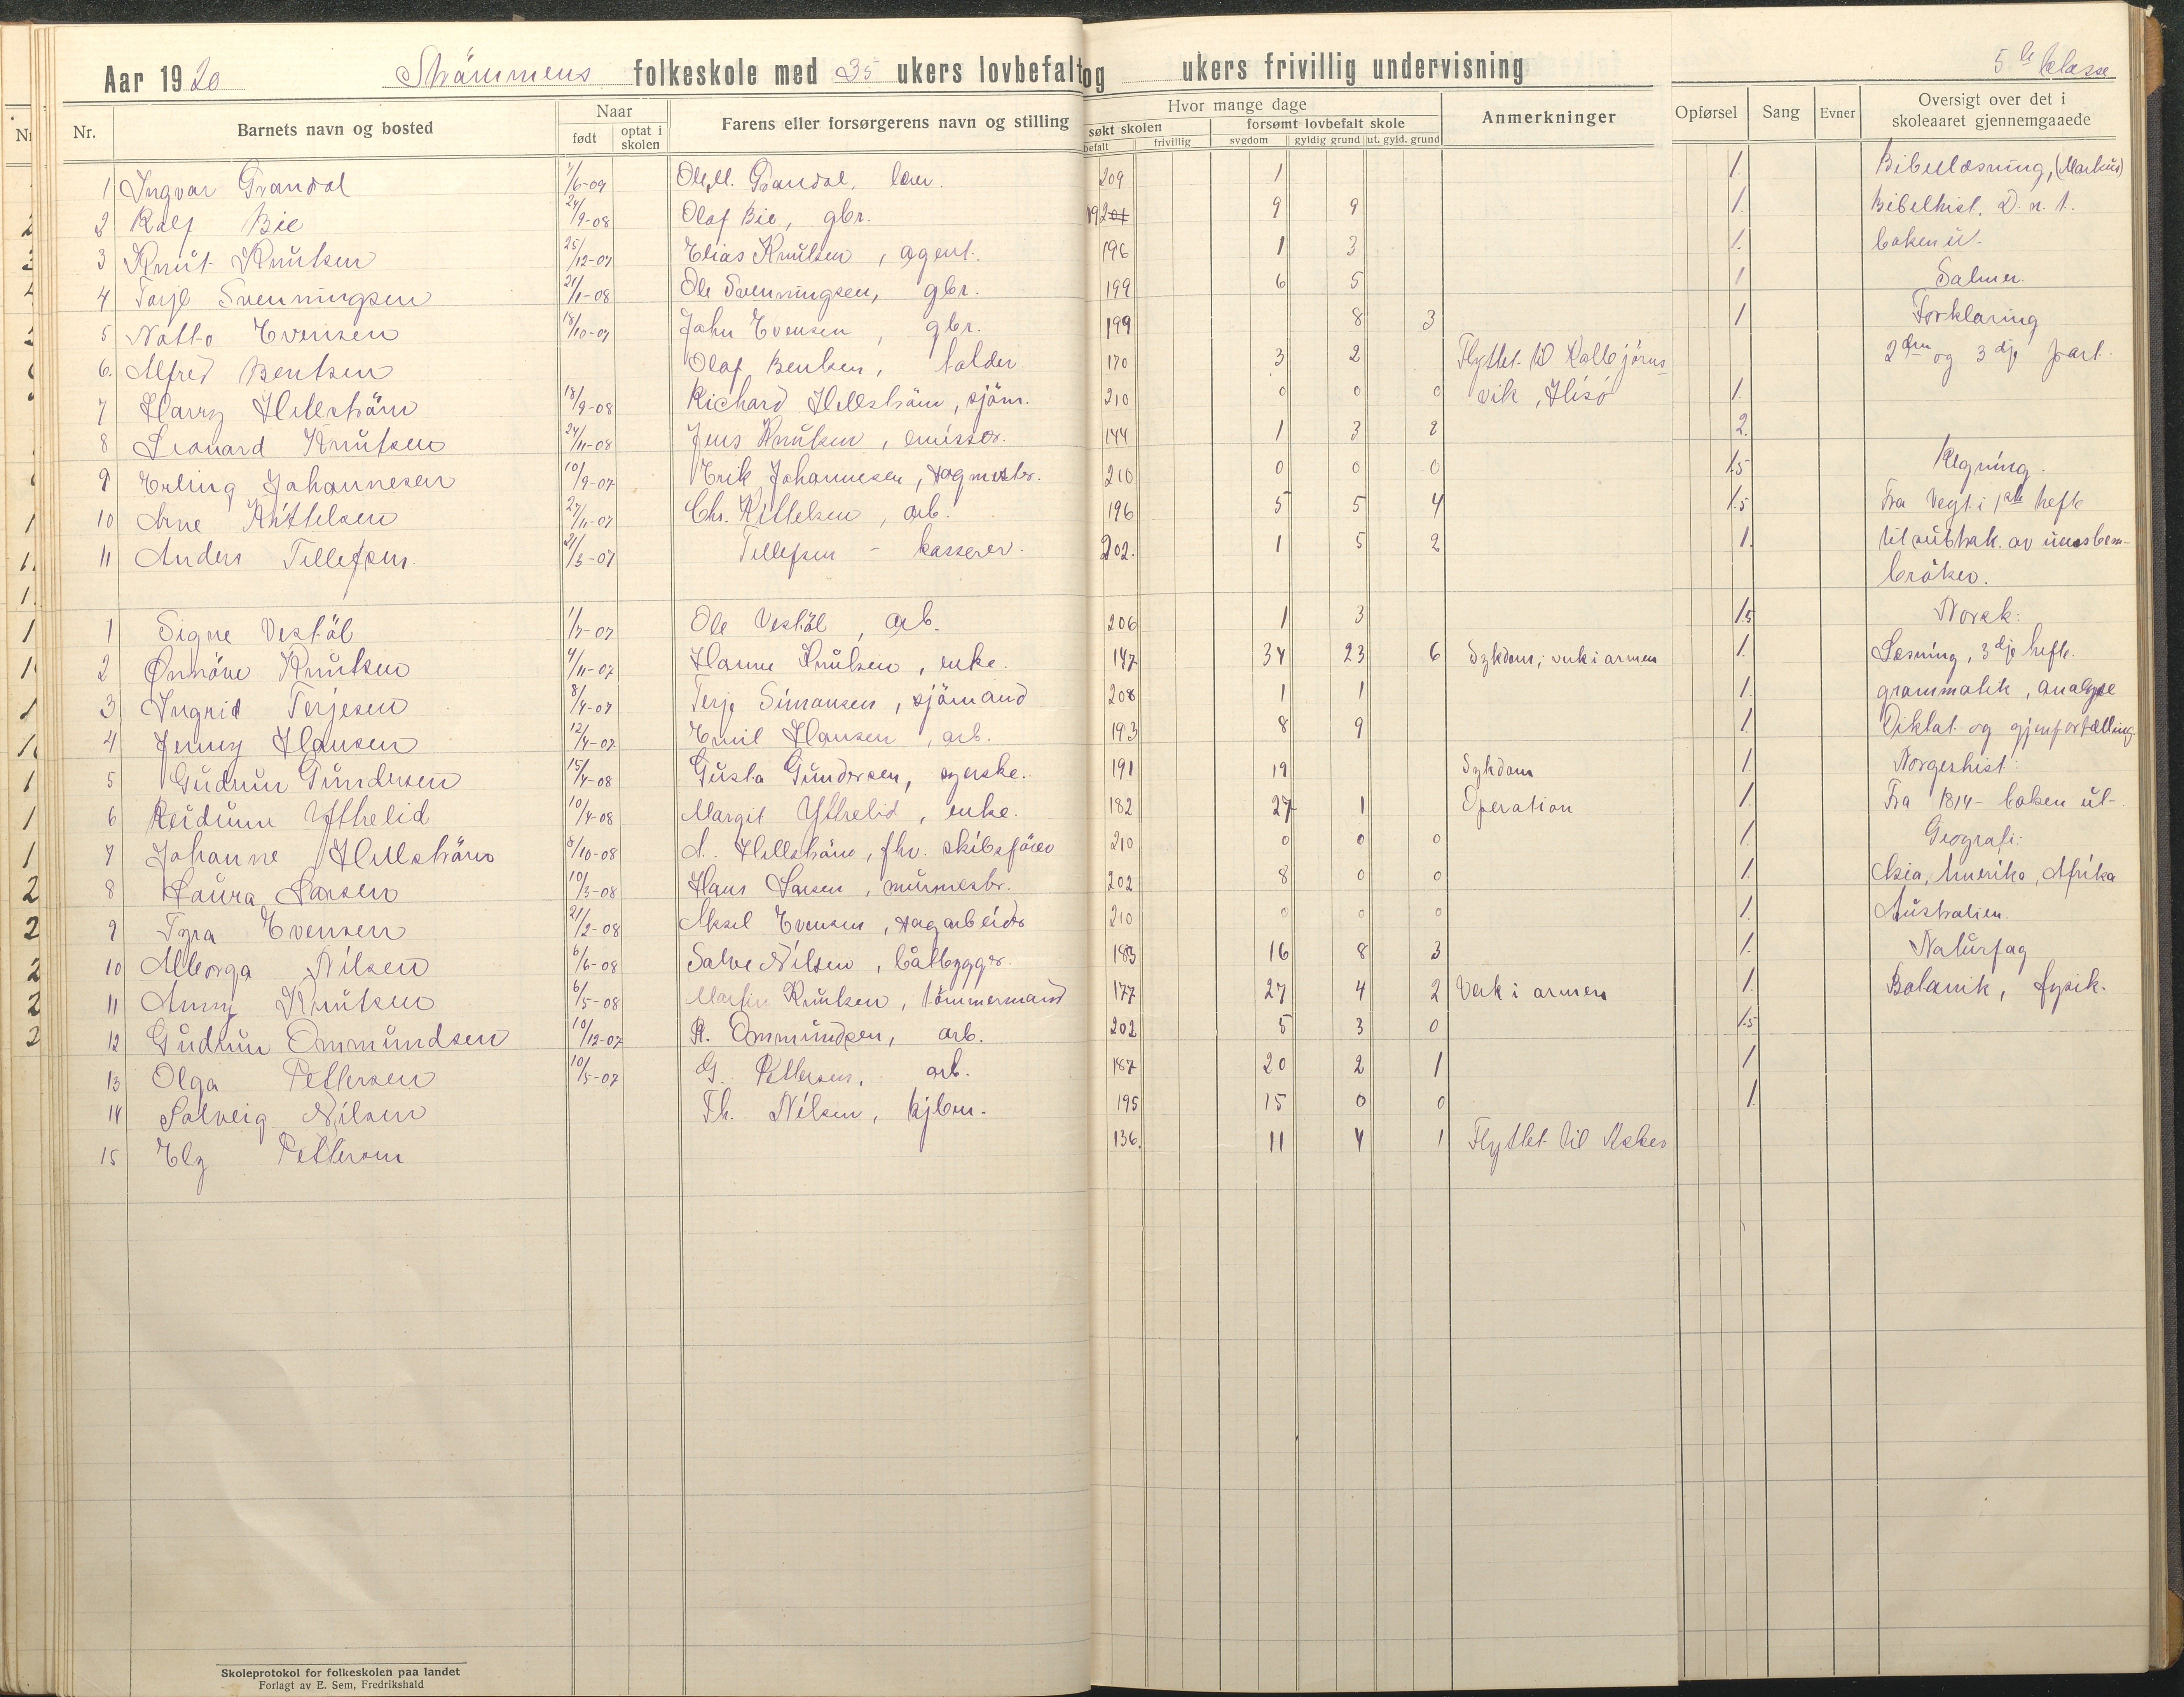 Aar 1920 Strömmens folkeskole med 35 ukers lovbefalt og ukers frivillig undervisning 5te klasse
Nr. Barnets navn og bosted Naar født optat i skolen Farens eller forsørgerens navn og stilling Hvor mange dage søkt skolen befalt frivillig forsømt lovbefalt skole sygdom gyldig grund ut. gyld. grund Anmerkninger Opførsel Sang Evner Oversigt over det i skoleaaret gjennemgaaede
1 Ingvar Grandal 1/6-09 Ole M. Grandal, lærer. 209 1 1. Bibellæsning, (Markus)
2 Ralf Bie 24/9-08 Olaf Bie, gbr. 192 9 9 1. Bibelhist. D. n. t.
3 Knut Knutsen 25/12-07 Elias Knutsen, agent. 196 1 3 1. boken ut.
4 Terje Svenningsen 21/1-08 Ole Svenningsen, gbr. 199 6 5 1 Salmer.
5 Notto Evensen 18/10-07 John Evensen, gbr. 199 8 3 1 Forklaring
6. Alfred Bentsen Olaf Bentsen, tolder. 170 3 2 Flyttet til Kolbjörns- 2den og 3dje part.
7 Harry Hellström 18/9-08 Richard Hellström, sjöm. 210 0 0 0 vik, Hisö 1.
8 Leonard Knutsen 24/11-08 Jens Knutsen, emissær. 144 1 3 2 2.
9 Erling Johannesen 10/9-07 Erik Johannesen, 210 0 0 0 1.5 Regning.
10 Arne Kittelsen 27/11-07 Chr. Kittelsen, arb. 196 5 5 4 1.5 Fra Vegt i 1ste hefte
11 Anders Tellefsen 21/3-07 Tellefsen - kasserer. 202. 1 5 2 1. til subtrak. av
bröker.
1 Signe Vestöl 1/7-07 Ole Vestöl, arb. 206 1 3 1.5 Norsk:
2 Knutsen 4/11-07 Hanne Knutsen, enke. 147 34 23 6 Sykdom; verk i armen 1. Læsning, 3dje hefte.
3 Ingrid Terjesen 8/7-07 Terje Simonsen, sjömand 208 1 1 1. grammatik, analyse
4 Jenny Hansen 12/4-07 Emil Hansen, arb. 193 8 9 1. Diktat og gjenfortælling.
5 Gudrun Gundersen 15/4-08 Gusta Gundersen, syerske. 191 19 Sykdom 1. Norgeshist:
6 Reidunn Ytthelid 10/4-08 Margit Ytthelid, enke. 182 27 1 Operation 1. Fra 1814- boken ut-
7 Johanne Hellström 8/10-08 A. Hellström, fhv. skibsförer 210 0 0 0 1. Geografi:
8 Laura Larsen 10/3-08 Hans Larsen, murmestr. 202 8 0 0 1. Asia, Amerika, Afrika
9 Tyra Evensen 21/2-08 Aksel Evensen, 210 0 0 0 1. Australien.
10 Alborga Nilsen 6/6-08 Salve Nilsen, båtbygger. 183 16 8 3 1. Naturfag
11 Anny Knutsen 6/5-08 Martin Knutsen, tömmermand 177 27 4 2 Verk i armen 1. Botanik, fysik.
12 Gudrun Ommundsen 10/12-07 R. Ommundsen, arb. 202 5 3 0 1.5
13 Olga Pettersen 10/5-07 G. Pettersen, arb. 187 20 2 1 1
14 Solveig Nilsen Th. Nilsen, kjbm. 195 15 0 0 1.
15 Ely Petterson 136. 11 4 1 Flyttet til
Skoleprotokol for folkeskolen paa landet
Forlagt av E. Sem, Fredrikshald